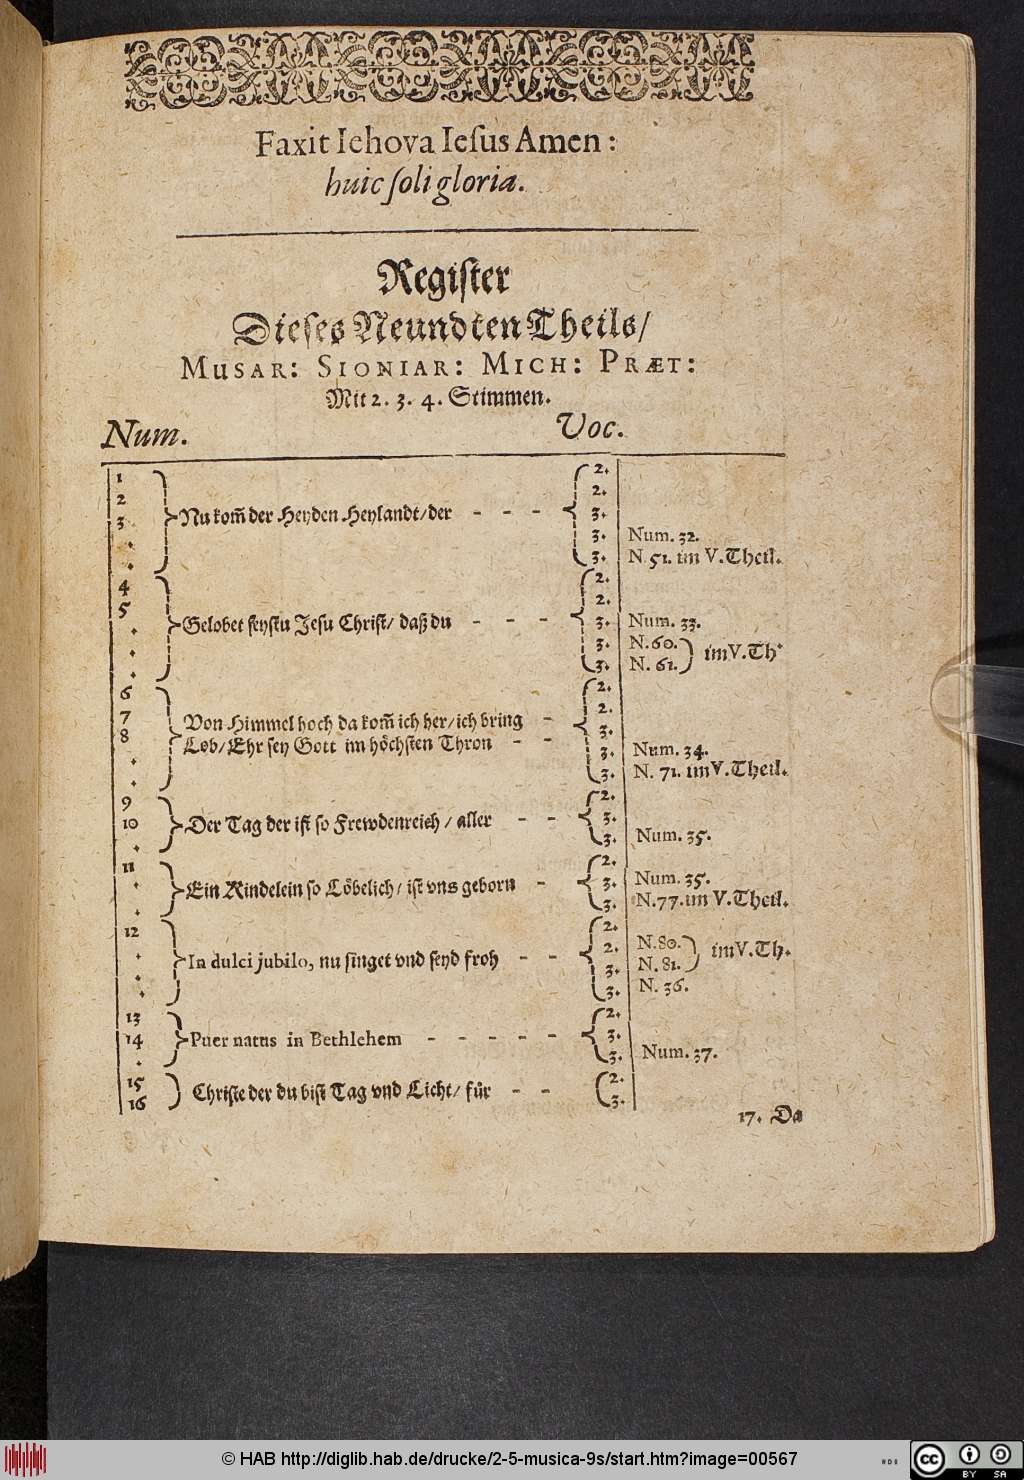 Faxit Iehova Iesus Amen:
huic soli gloria.
Register
Dieses Neundten Theils/
MUSAR: SIONIAR: MICH: PRÆT:
Mit 2. 3. 4. Stimmen.
Num. Voc.
1 2.
2 2.
3 Nu kom̃ der Heyden Heylandt/der - - - 3.
. 3. Num. 32.
. 3. N. 51. im V. Theil.
4 2.
5 2.
. Gelobet seystu Jesu Christ/ daß du - - - 3. Num. 33.
. 3. N. 60.
. 3. N. 61. im V. Th.
6 2.
7 Von Himmel hoch da kom̃ ich her/ich bring - 2.
8 Lob/Ehr sey Gott im höchsten Thron - - 3.
. 3. Num. 34.
. 3. N. 71. im V. Theil.
9 2.
10 Der Tag der ist so Frewdenreich / aller - - 3.
. 3. Num. 35.
11 2.
. Ein Kindelein so Löbelich/ ist vns geborn - 3. Num. 35.
. 3. N. 77. im V. Theil.
12 2.
. In dulci jubilo, nu singet vnd seyd froh - - 2. N. 80.
. 3. N. 81. im V. Th.
. 3. N. 36.
13 2.
14 Puer natus in Bethlehem - - - - - 3.
. 3. Num. 37.
15 Christe der du bist Tag vnd Licht/ für - - 2.
16 3.
17. Da
© HAB http://diglib.hab.de/drucke/2-5-musica-9s/start.htm?image=00567
cc BY SA